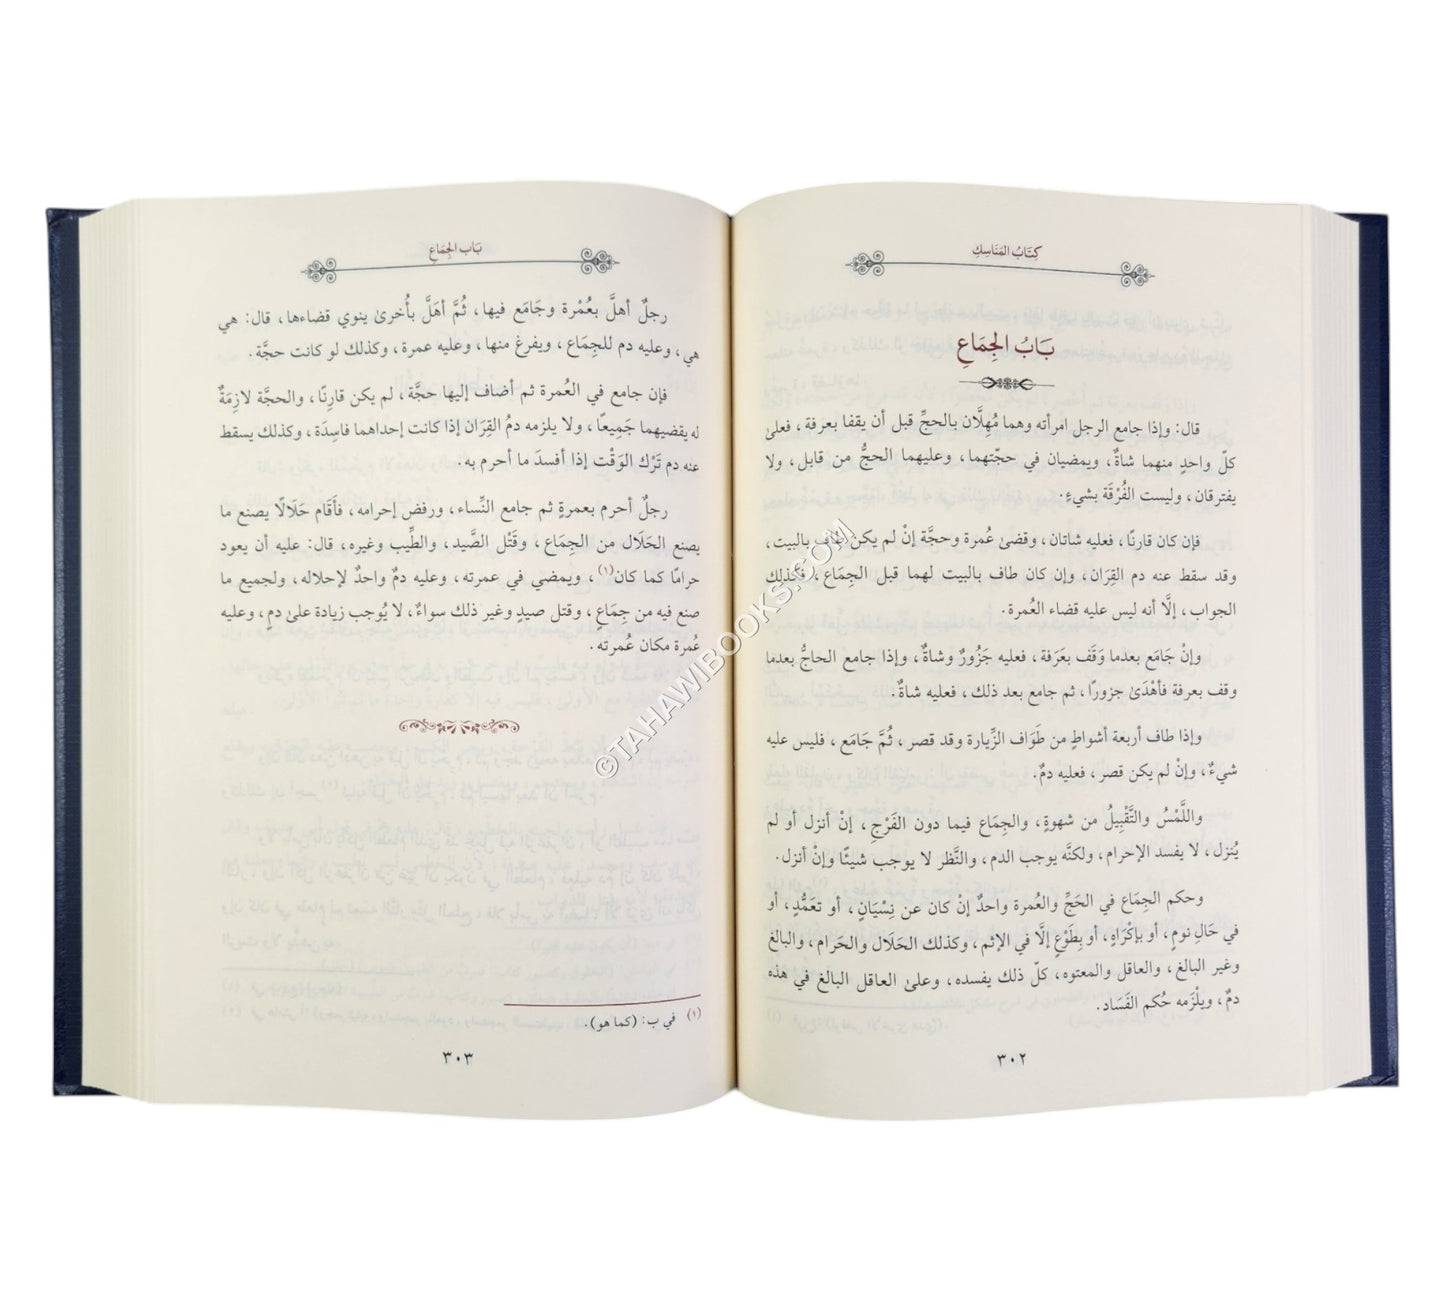 كِتَابُ المَنَاسِكِ
بَابُ الجِمَاعِ
قال: وإذا جامع الرجل امرأته وهما مُهِلَّان بالحجِّ قبل أن يقفا بعرفة، فعلىٰ
كلّ واحدٍ منهما شاةٌ، ويمضيان في حجّتهما، وعليهما الحجُّ من قابل، ولا
يفترقان، وليست الفُرْقَة بشيءٍ.
فإن كان قارنًا، فعليه شاتان، وقضىٰ عُمرة وحجَّة إنْ لم يكن طاف بالبيت،
وقد سقط عنه دم القِرَان، وإن كان طاف بالبيت لهما قبل الجِمَاع، فكذلك
الجواب، إلَّا أنه ليس عليه قضاء العُمرة.
وإنْ جَامَع بعدما وَقَف بعَرَفة، فعليه جَزُورٌ وشاةٌ، وإذا جامع الحاجُّ بعدما
وقف بعرفة فأهْدَىٰ جزورًا، ثم جامع بعد ذلك، فعليه شاةٌ.
وإذا طاف أربعة أشواطٍ من طَوَاف الزِّيارة وقد قصر، ثُمَّ جَامَع، فليس عليه
شيءٌ، وإنْ لم يكن قصر، فعليه دمٌ.
واللَّمْسُ والتَّقْبِيلُ من شهوةٍ، والجِمَاع فيما دون الفَرْجِ، إنْ أنزل أو لم
يُنزل، لا يفسد الإحرام، ولكنَّه يوجب الدم، والنَّظر لا يوجب شيئًا وإنْ أنزل.
وحكم الجِمَاع في الحَجِّ والعُمرة واحدٌ إنْ كان عن نِسْيَانٍ، أو تعَمُّدٍ، أو
في حَالِ نومٍ، أو بإكْرَاهٍ، أو بِطَوْعٍ إلَّا في الإثم، وكذلك الحَلَال والحَرام، والبالغ
وغير البالغ، والعاقل والمعتوه، كلّ ذلك يفسده، وعلىٰ العاقل البالغ في هذه
دمٌ، ويلْزَمه حُكم الفَسَاد.
٣٠٢
بَاب الجِمَاعِ
رجلٌ أهلَّ بعُمْرة وجَامَع فيها، ثُمَّ أهَلَّ بأُخرىٰ ينوي قضاءها، قال: هي
هي، وعليه دم للجِمَاع، ويفرغ منها، وعليه عمرة، وكذلك لو كانت حجَّة.
فإن جامع في العُمرة ثم أضاف إليها حجَّة، لم يكن قارِنًا، والحجَّة لازِمَةٌ
له يقضيهما جَمِيعاً، ولا يلزمه دمُ القِرَان إذا كانت إحداهما فاسِدَة، وكذلك يسقط
عنه دم تَرْك الوَقْت إذا أفسدَ ما أحرم به.
رجلٌ أحرم بعمرةٍ ثم جامع النِّساء، ورفض إحرامه، فأقَام حَلَالًا يصنع ما
يصنع الحَلَال من الجِمَاع، وقَتْل الصَّيد، والطِّيب وغيره، قال: عليه أن يعود
حرامًا كما كان(١)، ويمضي في عمرته، وعليه دمٌ واحدٌ لإحلاله، ولجميع ما
صنع فيه من جِمَاعٍ، وقتل صيدٍ وغير ذلك سواءٌ، لا يُوجب زيادة علىٰ دمٍ، وعليه
عُمرة مكان عُمرته.
(١) في ب: (كما هو).
٣٠٣
©TAHAWIBOOKS.COM